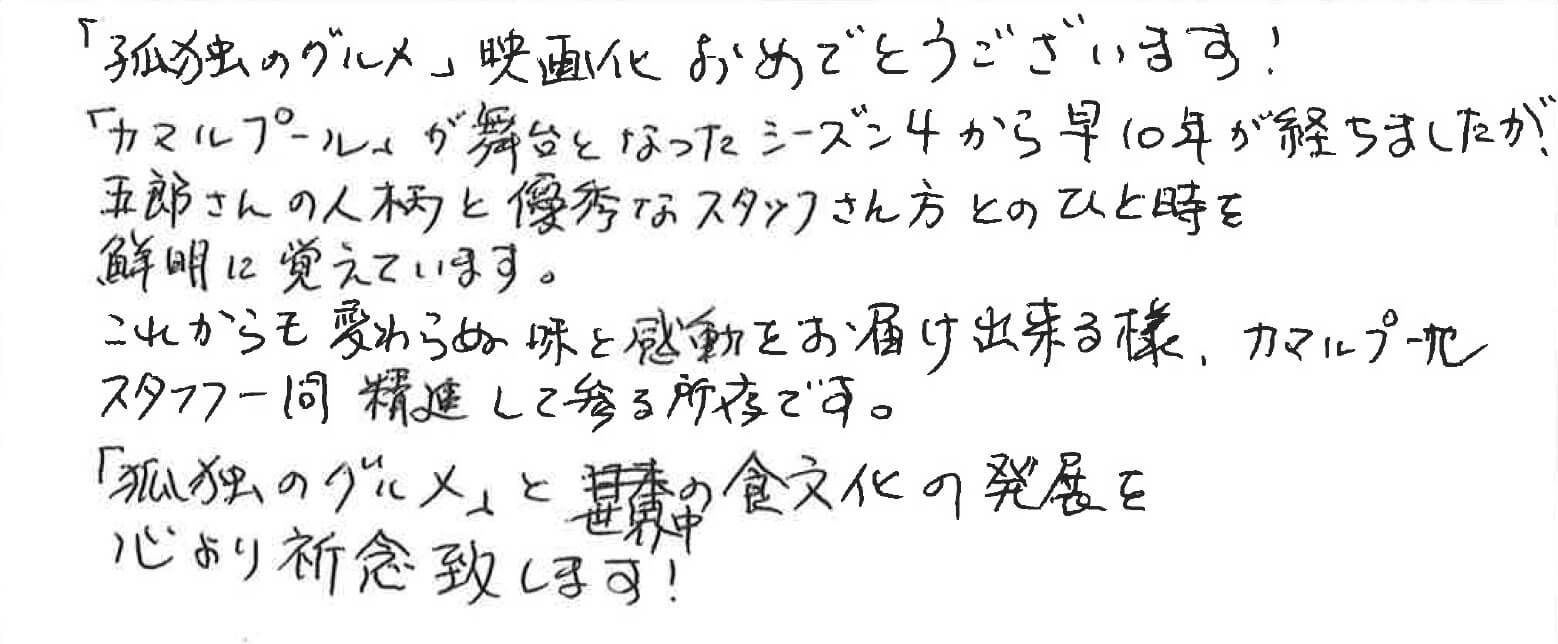 「孤独のグルメ」映画化 おめでとうございます!
「カマルプール」が舞台となったシーズン4から早10年が経ちましたが、
五郎さんの人柄と優秀なスタッフさん方とのひと時を
鮮明に覚えています。
これからも変わらぬ味と感動をお届け出来る様、カマルプール
スタッフ一同 精進して参る所存です。
「孤独のグルメ」と 世界中の食文化の発展を
心より祈念致します!